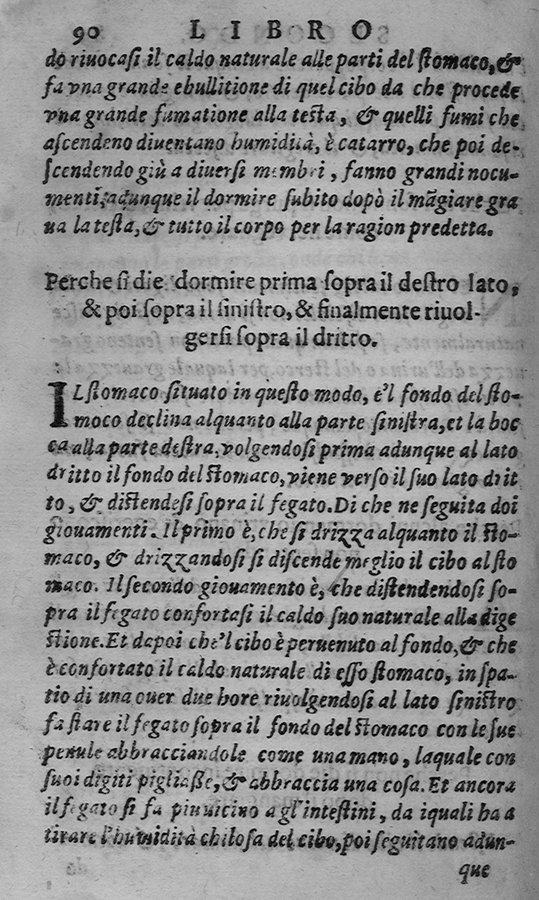 90 LIBRO
do riuocasi il caldo naturale alle parti del stomaco, &
fa vna grande ebullitione di quel cibo da che procede
vna grande fumatione alla testa, & quelli fumi che
ascendeno diuentano humidità, è catarro, che poi de-
scendendo giù a diuersi membri, fanno grandi nocu-
menti, adunque il dormire subito dopò il mãgiare gra
ua la testa, & tutto il corpo per la ragion predetta.
Perche si die dormire prima sopra il destro lato,
& poi sopra il sinistro, & finalmente riuol-
gersi sopra il dritto.
IL stomaco situato in questo modo, e'l fondo del sto-
moco declina alquanto alla parte sinistra, et la boc
ca alla parte destra, volgendosi prima adunque al lato
dritto il fondo del stomaco, viene verso il suo lato drit
to, & distendesi sopra il fegato. Di che ne seguita doi
giouamenti. Il primo è, che si drizza alquanto il sto-
maco, & drizzandosi si discende meglio il cibo al sto
maco. Il secondo giouamento è, che distendendosi so-
pra il fegato confortasi il caldo suo naturale alla dige
stione. Et dapoi che'l cibo è peruenuto al fondo, & che
è confortato il caldo naturale di esso stomaco, in spa-
tio di una ouer due hore riuolgendosi al lato sinistro
fa stare il fegato sopra il fondo del stomaco con le sue
penule abbracciandole come una mano, laquale con
suoi digiti pigliasse, & abbraccia una cosa. Et ancora
il fegato si fa piu uicino a gl'intestini, da iquali ha a
tirare l'humidità chilosa del cibo, poi seguitano adun-
que